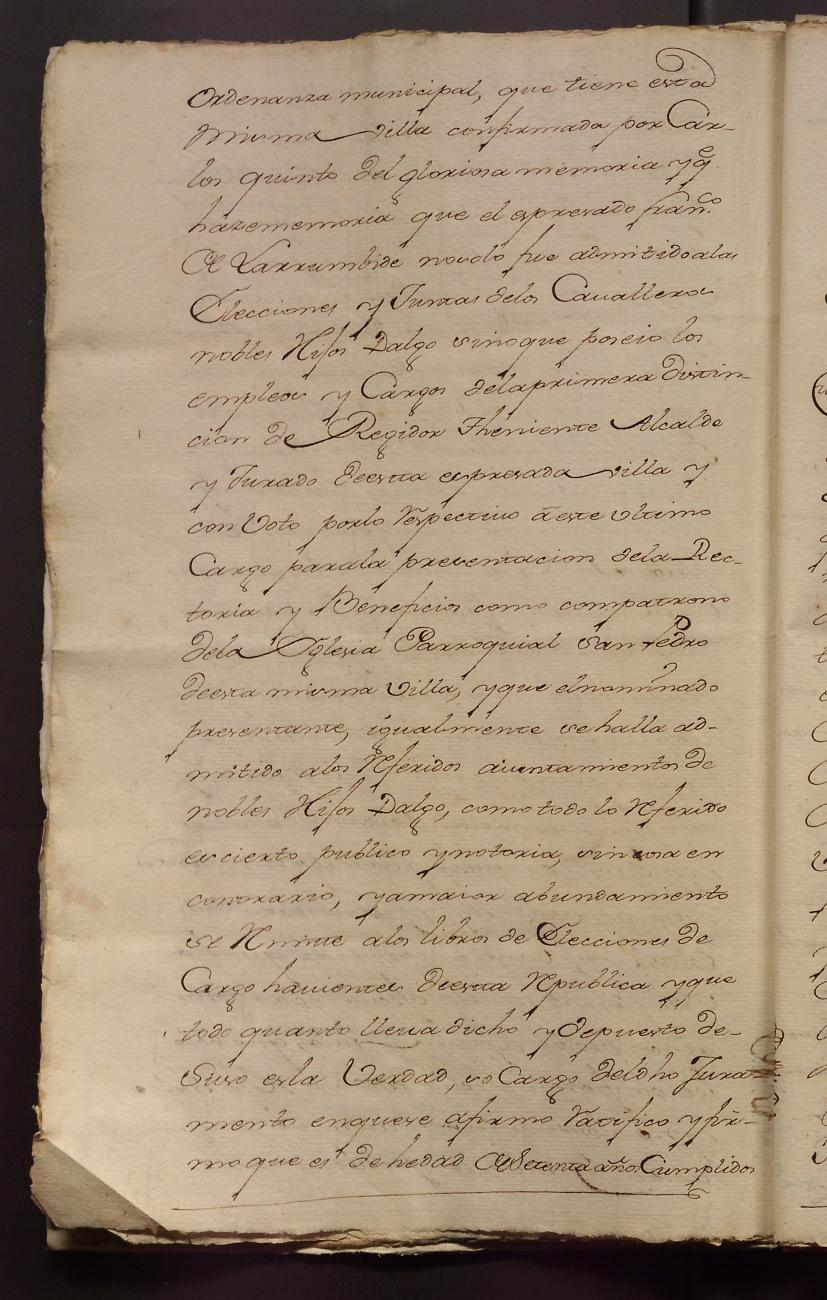 Ordenanza municipal, que tiene esta
misma villa confirmada por Car-
los quinto del gloriosa memoria y q.e
haze memoria que el espresado fran.co
de Larrumbide no solo fue admitido a las
Elecciones y Juntas de los Cavalleros
nobles Hijos Dalgo sino que poseio los
empleos y Cargos de la primera distin-
cion de Regidor Theniente Alcalde
y Jurado de esta espresada villa y
con Voto por lo respectivo a este ultimo
Cargo para la presentacion de la Rec-
toria y Beneficios como compatrono
de la Yglesia Parroquial San Pedro
de esta misma Villa, y que el nominado
presentante, igualmente se halla ad-
mitido a los referidos aiuntamientos de
nobles Hijos Dalgo, como todo lo referido
es cierto publico y notoria, sin cosa en
contrario, y a maior abundamiento
se remite a los libros de Elecciones de
Cargo havientes de esta republica y que
todo quanto lleva dicho y depuesto de-
suso es la Verdad, so Cargo del dho Jura-
mento en que se afirmo ratifico y fir-
mo que es de hedad de setenta años Cumplidos